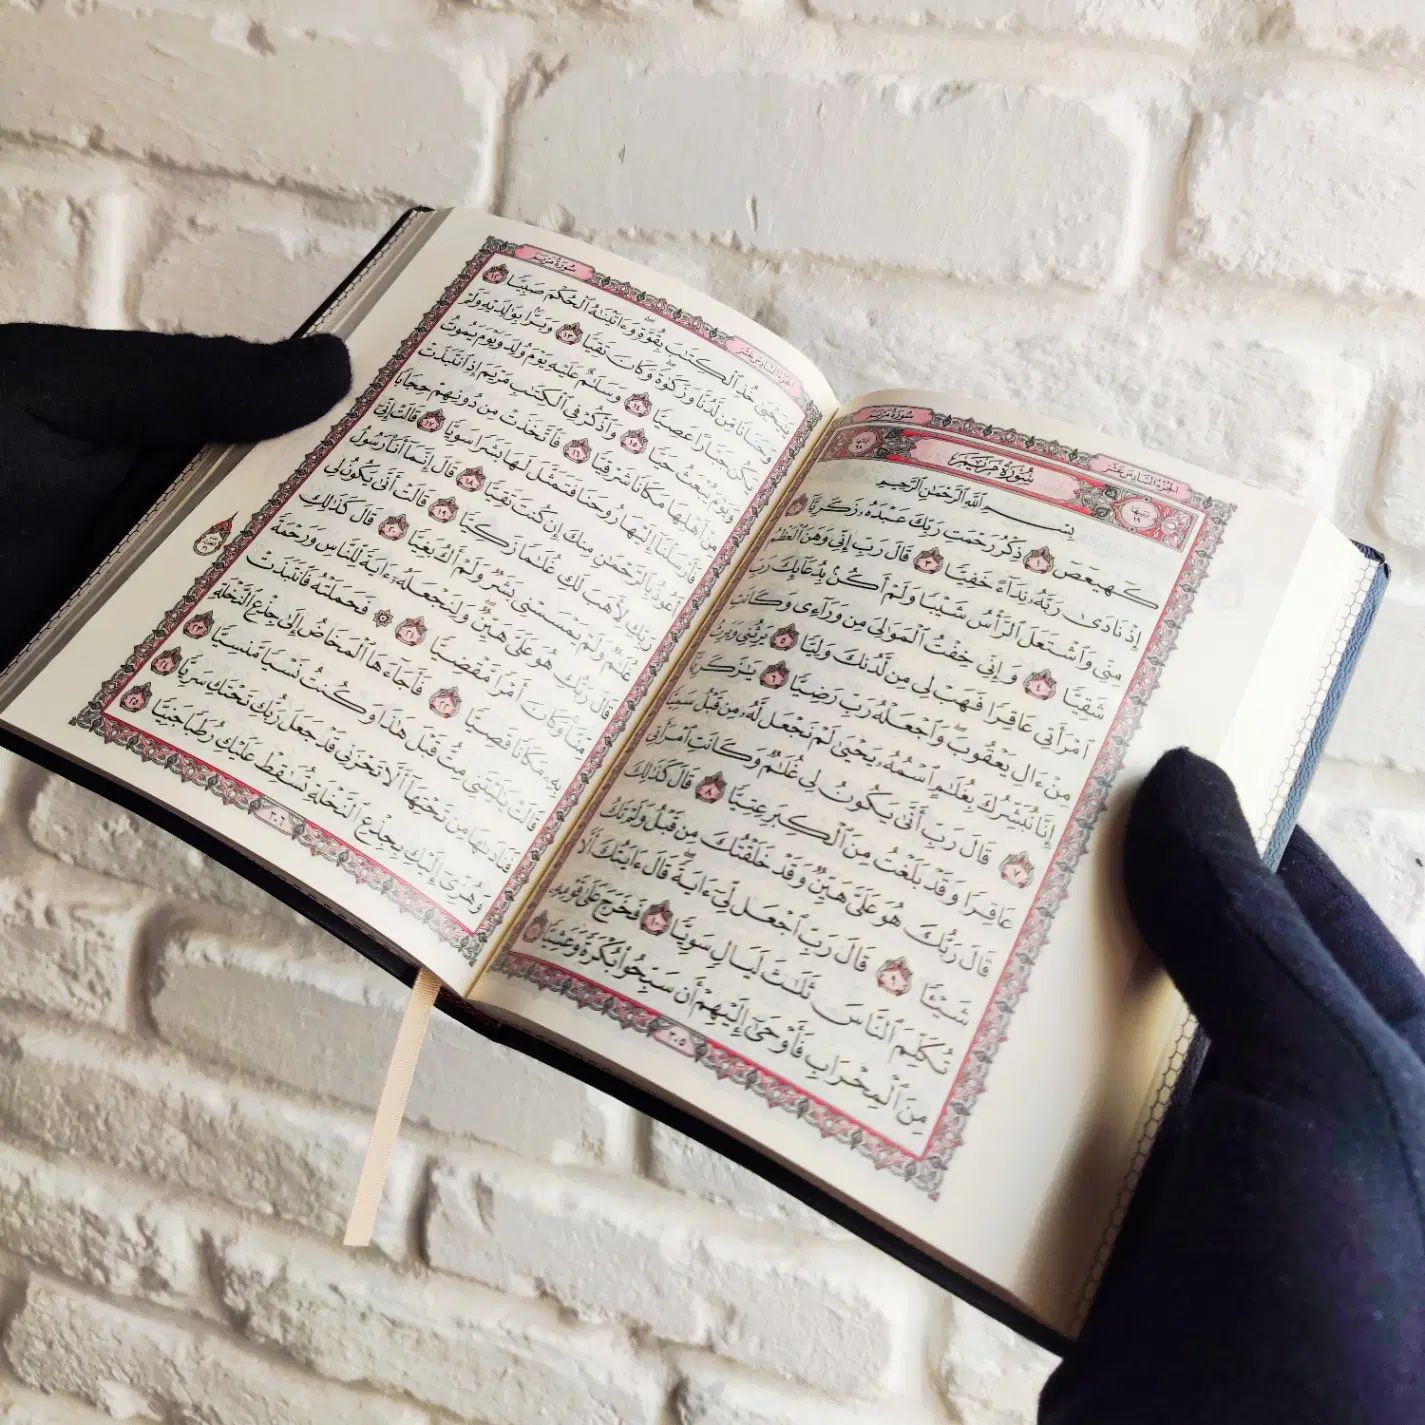 سُورَةُ مَرْيَمَ
الجُزْءُ السَّادِسَ عَشَرَ
سُورَةُ مَرْيَمَ
بِسْمِ ٱللَّهِ ٱلرَّحْمَٰنِ ٱلرَّحِيمِ
كٓهيعٓصٓ ١ ذِكْرُ رَحْمَتِ رَبِّكَ عَبْدَهُۥ زَكَرِيَّآ ٢
إِذْ نَادَىٰ رَبَّهُۥ نِدَآءً خَفِيًّا ٣ قَالَ رَبِّ إِنِّي وَهَنَ ٱلْعَظْمُ
مِنِّي وَٱشْتَعَلَ ٱلرَّأْسُ شَيْبًا وَلَمْ أَكُنۢ بِدُعَآئِكَ رَبِّ
شَقِيًّا ٤ وَإِنِّي خِفْتُ ٱلْمَوَٰلِيَ مِن وَرَآءِي وَكَانَتِ
ٱمْرَأَتِي عَاقِرًا فَهَبْ لِي مِن لَّدُنكَ وَلِيًّا ٥ يَرِثُنِي وَيَرِثُ
مِنْ ءَالِ يَعْقُوبَ وَٱجْعَلْهُ رَبِّ رَضِيًّا ٦ يَٰزَكَرِيَّآ
إِنَّا نُبَشِّرُكَ بِغُلَٰمٍ ٱسْمُهُۥ يَحْيَىٰ لَمْ نَجْعَل لَّهُۥ مِن قَبْلُ سَمِيًّا
٧ قَالَ رَبِّ أَنَّىٰ يَكُونُ لِي غُلَٰمٌ وَكَانَتِ ٱمْرَأَتِي
عَاقِرًا وَقَدْ بَلَغْتُ مِنَ ٱلْكِبَرِ عِتِيًّا ٨ قَالَ كَذَٰلِكَ
قَالَ رَبُّكَ هُوَ عَلَيَّ هَيِّنٌ وَقَدْ خَلَقْتُكَ مِن قَبْلُ وَلَمْ تَكُ
شَيْـًٔا ٩ قَالَ رَبِّ ٱجْعَل لِّيٓ ءَايَةً قَالَ ءَايَتُكَ أَلَّا
تُكَلِّمَ ٱلنَّاسَ ثَلَٰثَ لَيَالٍ سَوِيًّا ١٠ فَخَرَجَ عَلَىٰ قَوْمِهِۦ
مِنَ ٱلْمِحْرَابِ فَأَوْحَىٰٓ إِلَيْهِمْ أَن سَبِّحُوا۟ بُكْرَةً وَعَشِيًّا ١١
٣٠٥
سُورَةُ مَرْيَمَ
الجُزْءُ السَّادِسَ عَشَرَ
يَٰيَحْيَىٰ خُذِ ٱلْكِتَٰبَ بِقُوَّةٍ وَءَاتَيْنَٰهُ ٱلْحُكْمَ صَبِيًّا ١٢
وَحَنَانًا مِّن لَّدُنَّا وَزَكَوٰةً وَكَانَ تَقِيًّا ١٣ وَبَرًّۢا بِوَٰلِدَيْهِ وَلَمْ
يَكُن جَبَّارًا عَصِيًّا ١٤ وَسَلَٰمٌ عَلَيْهِ يَوْمَ وُلِدَ وَيَوْمَ يَمُوتُ
وَيَوْمَ يُبْعَثُ حَيًّا ١٥ وَٱذْكُرْ فِي ٱلْكِتَٰبِ مَرْيَمَ إِذِ ٱنتَبَذَتْ
مِنْ أَهْلِهَا مَكَانًا شَرْقِيًّا ١٦ فَٱتَّخَذَتْ مِن دُونِهِمْ حِجَابًا
فَأَرْسَلْنَآ إِلَيْهَا رُوحَنَا فَتَمَثَّلَ لَهَا بَشَرًا سَوِيًّا ١٧ قَالَتْ إِنِّيٓ
أَعُوذُ بِٱلرَّحْمَٰنِ مِنكَ إِن كُنتَ تَقِيًّا ١٨ قَالَ إِنَّمَآ أَنَا۠ رَسُولُ
رَبِّكِ لِأَهَبَ لَكِ غُلَٰمًا زَكِيًّا ١٩ قَالَتْ أَنَّىٰ يَكُونُ لِي
غُلَٰمٌ وَلَمْ يَمْسَسْنِي بَشَرٌ وَلَمْ أَكُ بَغِيًّا ٢٠ قَالَ كَذَٰلِكِ
قَالَ رَبُّكِ هُوَ عَلَيَّ هَيِّنٌ وَلِنَجْعَلَهُۥٓ ءَايَةً لِّلنَّاسِ وَرَحْمَةً
مِّنَّا وَكَانَ أَمْرًا مَّقْضِيًّا ٢١ ۞ فَحَمَلَتْهُ فَٱنتَبَذَتْ
بِهِۦ مَكَانًا قَصِيًّا ٢٢ فَأَجَآءَهَا ٱلْمَخَاضُ إِلَىٰ جِذْعِ ٱلنَّخْلَةِ
قَالَتْ يَٰلَيْتَنِي مِتُّ قَبْلَ هَٰذَا وَكُنتُ نَسْيًا مَّنسِيًّا ٢٣
فَنَادَىٰهَا مِن تَحْتِهَآ أَلَّا تَحْزَنِي قَدْ جَعَلَ رَبُّكِ تَحْتَكِ سَرِيًّا ٢٤
وَهُزِّيٓ إِلَيْكِ بِجِذْعِ ٱلنَّخْلَةِ تُسَٰقِطْ عَلَيْكِ رُطَبًا جَنِيًّا ٢٥
٣٠٦